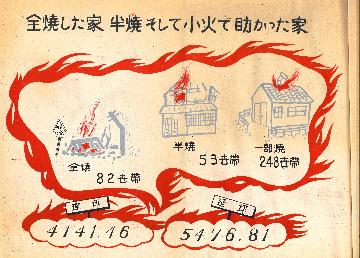 全焼した家 半焼 そして 小火で助かった家
全焼
82世帯
半焼
53世帯
一部焼
248世帯
延坪
4141.46
延坪
5476.81